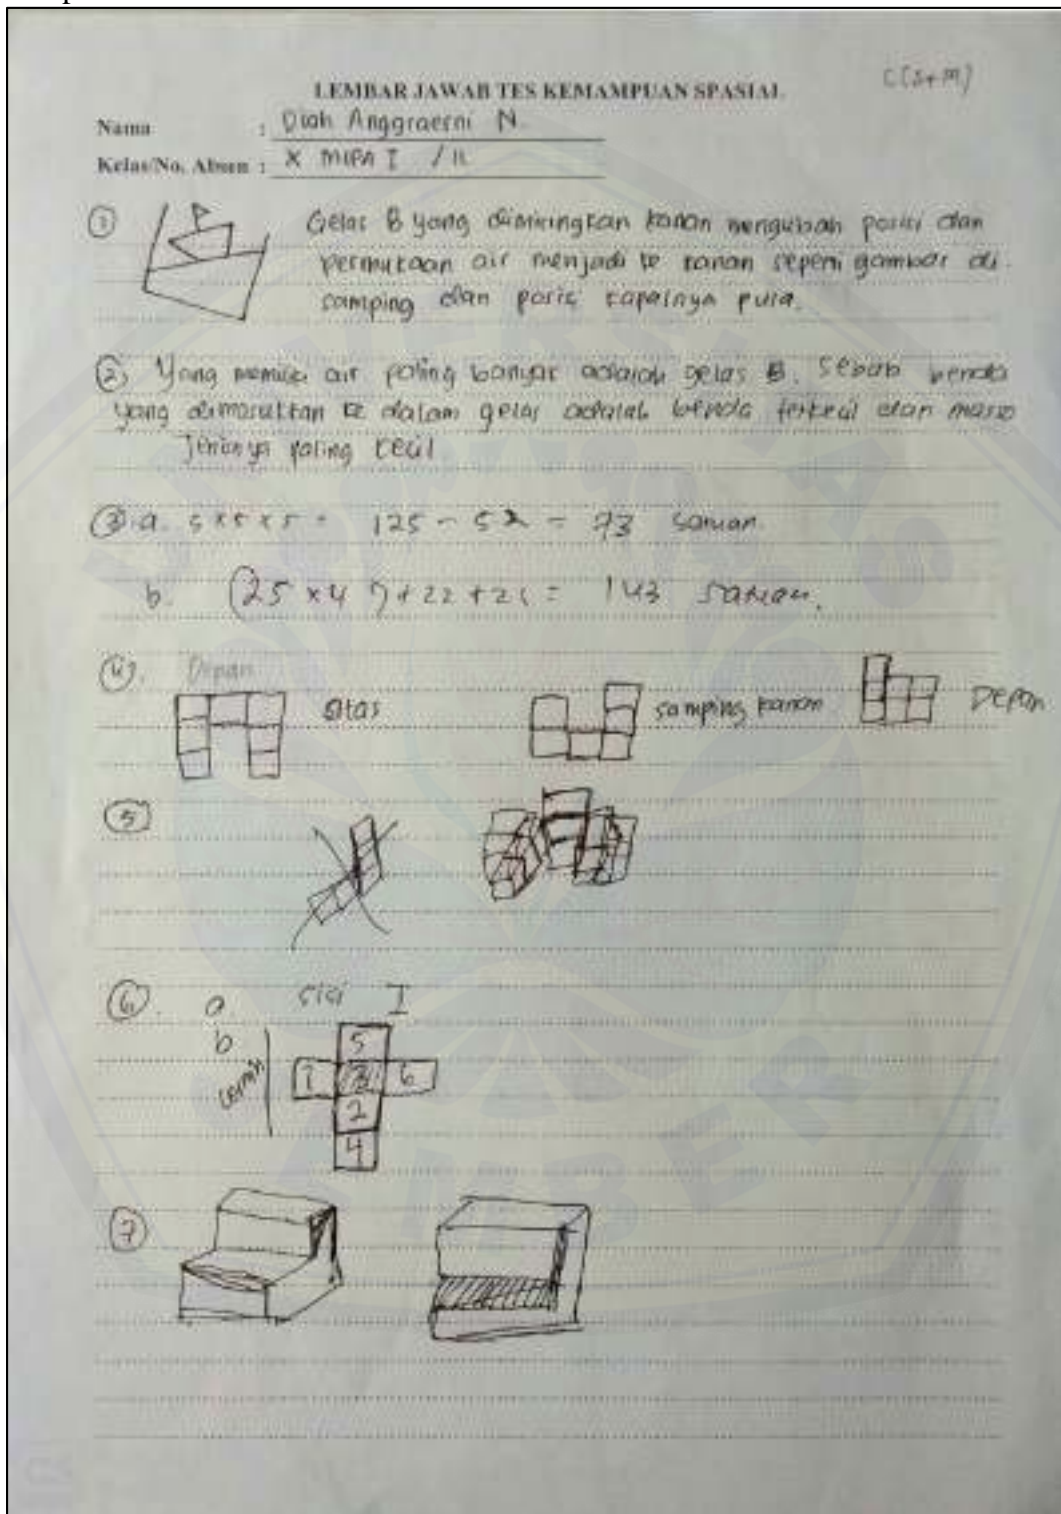 C(S+M)
LEMBAR JAWAB TES KEMAMPUAN SPASIAL
Nama : Diah Anggraeni N.
Kelas/No. Absen : X MIPA I / 11
① Gelas B yang dimiringkan kanan mengubah posisi dan
permukaan air menjadi ke kanan seperti gambar di
samping dan posisi kapalnya pula.
② Yang memiliki air paling banyak adalah gelas B. Sebab benda
yang dimasukkan ke dalam gelas adalah benda terkecil dan massa
jenisnya paling kecil
③ a. 5 x 5 x 5 = 125 - 52 = 73 satuan.
b. (25 x 4) + 22 + 21 = 143 satuan.
④. Depan
atas samping kanan Depan
⑤
⑥. a sisi I
b
cermin
5
1 3 6
2
4
⑦
UNIVERSITAS JEMBER